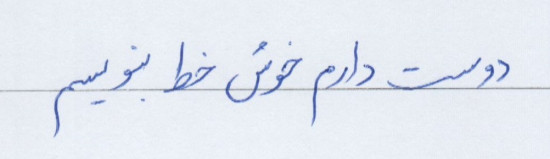 دوست دارم خوش خط بنویسم